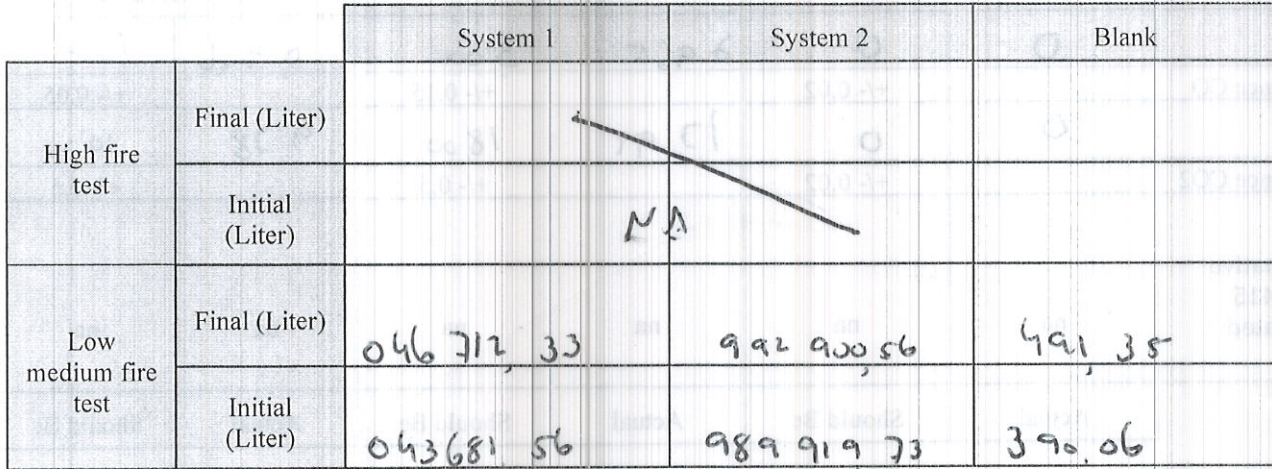 System 1 System 2 Blank
High fire test Final (Liter)
Initial (Liter) NA
Low medium fire test Final (Liter) 046 712,33 992 900,56 491,35
Initial (Liter) 043681,56 989 919,73 390.06